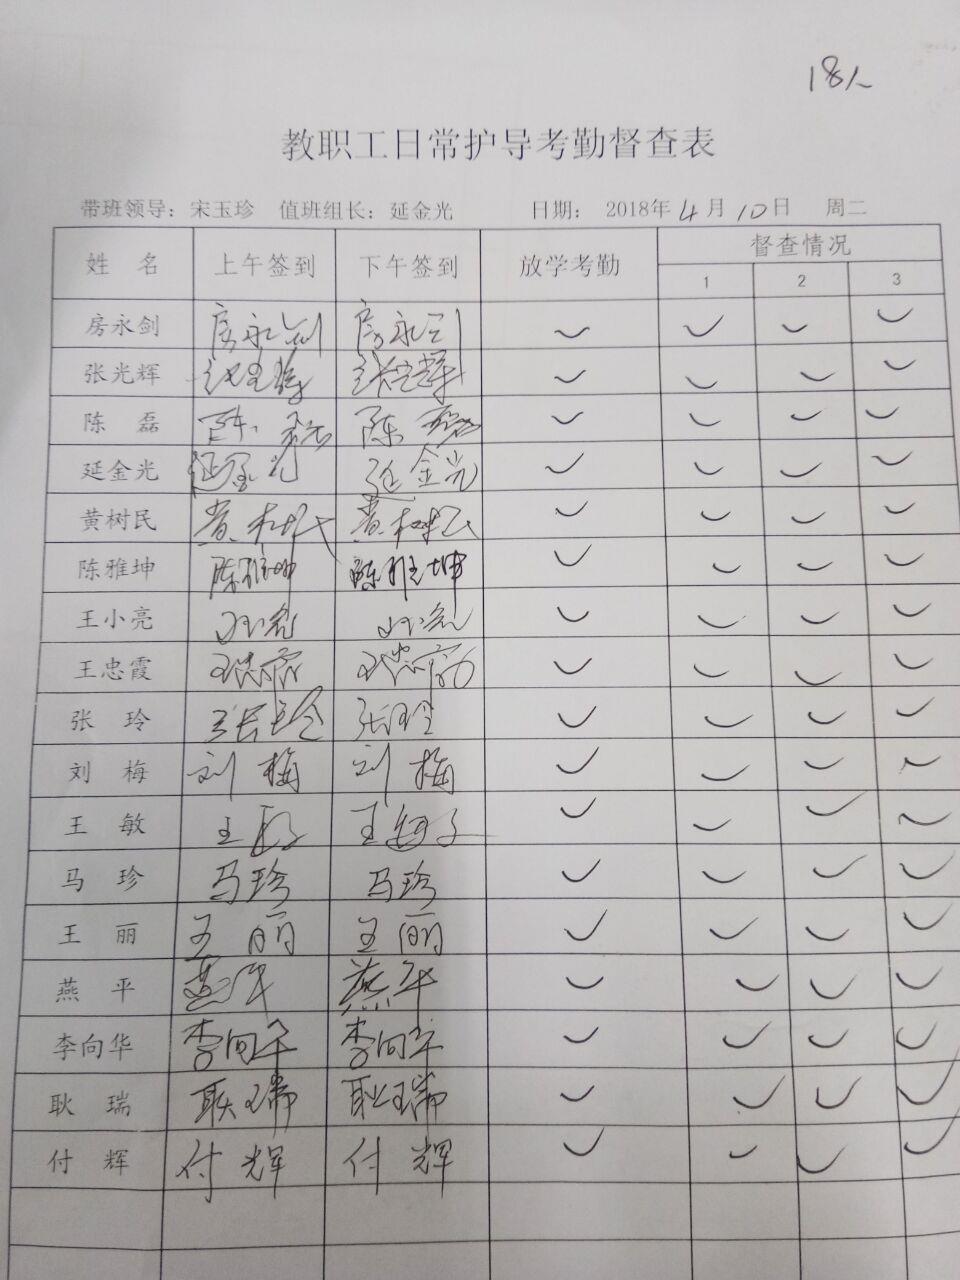 18人
教职工日常护导考勤督查表
带班领导：宋玉珍 值班组长：延金光 日期： 2018年4月10日 周二
姓 名 上午签到 下午签到 放学考勤 督查情况
1 2 3
房永剑 房永剑 房永剑 ✓ ✓ ✓ ✓
张光辉 张光辉 张光辉 ✓ ✓ ✓ ✓
陈 磊 陈磊 陈磊 ✓ ✓ ✓ ✓
延金光 延金光 延金光 ✓ ✓ ✓ ✓
黄树民 黄树民 黄树民 ✓ ✓ ✓ ✓
陈雅坤 陈雅坤 陈雅坤 ✓ ✓ ✓ ✓
王小亮 王小亮 王小亮 ✓ ✓ ✓ ✓
王忠霞 王忠霞 王忠霞 ✓ ✓ ✓ ✓
张 玲 张玲 张玲 ✓ ✓ ✓ ✓
刘 梅 刘梅 刘梅 ✓ ✓ ✓ ✓
王 敏 王敏 王敏 ✓ ✓ ✓ ✓
马 珍 马珍 马珍 ✓ ✓ ✓ ✓
王 丽 王丽 王丽 ✓ ✓ ✓ ✓
燕 平 燕平 燕平 ✓ ✓ ✓ ✓
李向华 李向华 李向华 ✓ ✓ ✓ ✓
耿 瑞 耿瑞 耿瑞 ✓ ✓ ✓ ✓
付 辉 付辉 付辉 ✓ ✓ ✓ ✓